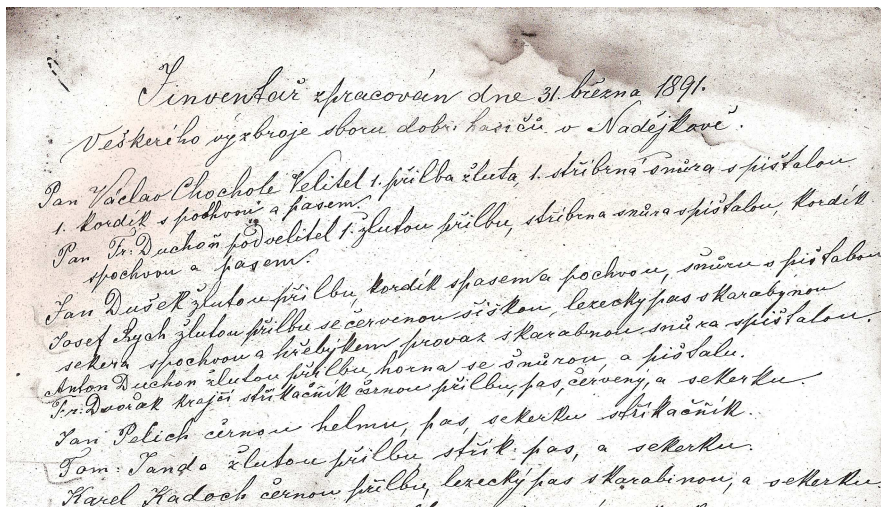 Jinventář zpracován dne 31. března 1891.
Veškerého výzbroje sboru dobr: hasičů v Nadějkově.
Pan Václav Chochole Velitel 1. přilba žluta, 1. stříbrná snůra s pišťalou
1. kordík s pochvou a pasem.
Pan Fr: Duchoň podvelitel 1. žlutou přilbu, stříbrna snůra s pišťalou, kordík
spochvou a pasem.
Jan Dušek žlutou přilbu, kordík spasem a pochvou, snůru s pišťalou
Josef Rych žlutou přilbu se červenou šiškou, lezecký pas skarabynou
sekera spochvou a hřebýkem provaz skarabnou snůra spišťalou.
Anton Duchon žlutou přilbu, horna se šnůrou, a pišťalu.
Fr: Dvořák krajčí střikačník černou přilbu, pas, červený, a sekerku.
Jan Pelich černou helmu, pas, sekerku střikačňík.
Tom: Janda žlutou přilbu střík: pas, a sekerku.
Karel Kadoch černou přilbu, lezecký pas skarabinou, a sekerku.